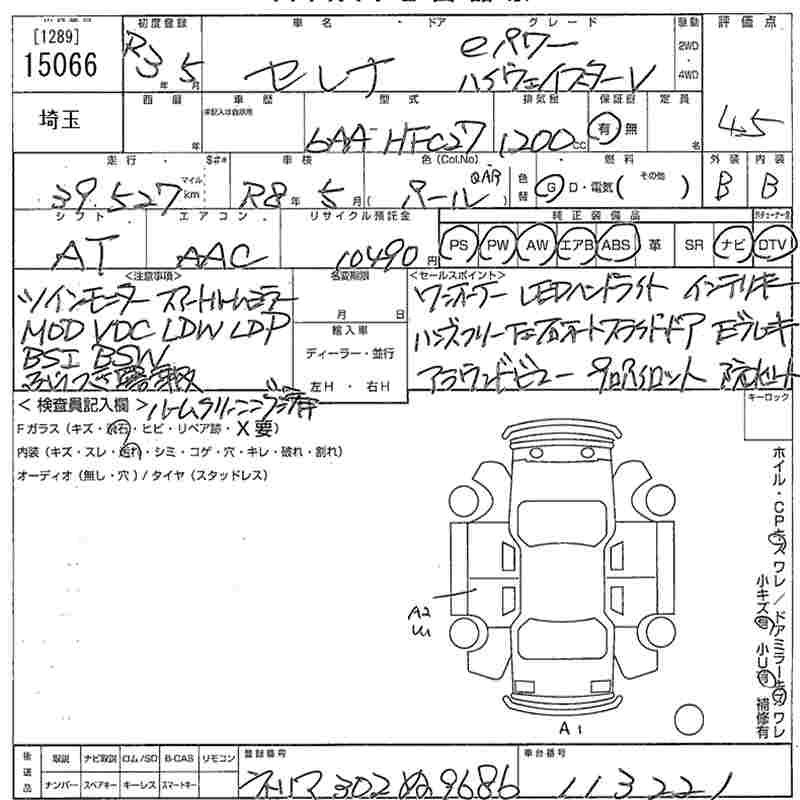 [1289]
15066
初度登録
R3年5月
車名・ドア
セレナ
グレード
eパワー
ハイウェイスターV
駆動
2WD
・
4WD
評価点
4.5
埼玉
西暦
年
車歴
型式
6AA-HFC27
排気量
1200cc
保証書
有・無
定員
名
走行・$#*
39.527
マイル
km
車検
R8年5月
色(Col.No)
パール(QAB)
色替
燃料
G・D・電気(その他)
外装
B
内装
B
シフト
AT
エアコン
AAC
リサイクル預託金
10490円
純正装備品
PS PW AW エアB ABS 革 SR ナビ DTV
<注意事項>
ツインモーター スマートルームミラー
MOD VDC LDW LDP
BSI BSW
名変期限
月 日
輸入車
ディーラー・並行
左H ・ 右H
<セールスポイント>
ワンオーナー LEDヘッドライト インテリキー
ハンズフリー 左右オートスライドドア Eブレーキ
アラウンドビュー プロパイロット 防水シート
キーロック
<検査員記入欄> ルームクリーニング済
Fガラス(キズ・飛石・ヒビ・リペア跡・X要)
内装(キズ・スレ・汚れ・シミ・コゲ・穴・キレ・破れ・割れ)
オーディオ(無し・穴)/タイヤ(スタッドレス)
ホイル・CPキズ ワレ/ドアミラーキズ ワレ
小キズ有 小U有 補修有
A2
U1
A1
後送品
取説 ナビ取説 ロム/SD B-CAS リモコン
ナンバー スペアキー キーレス スマートキー
登録番号
302 ぬ 9686
車台番号
113221